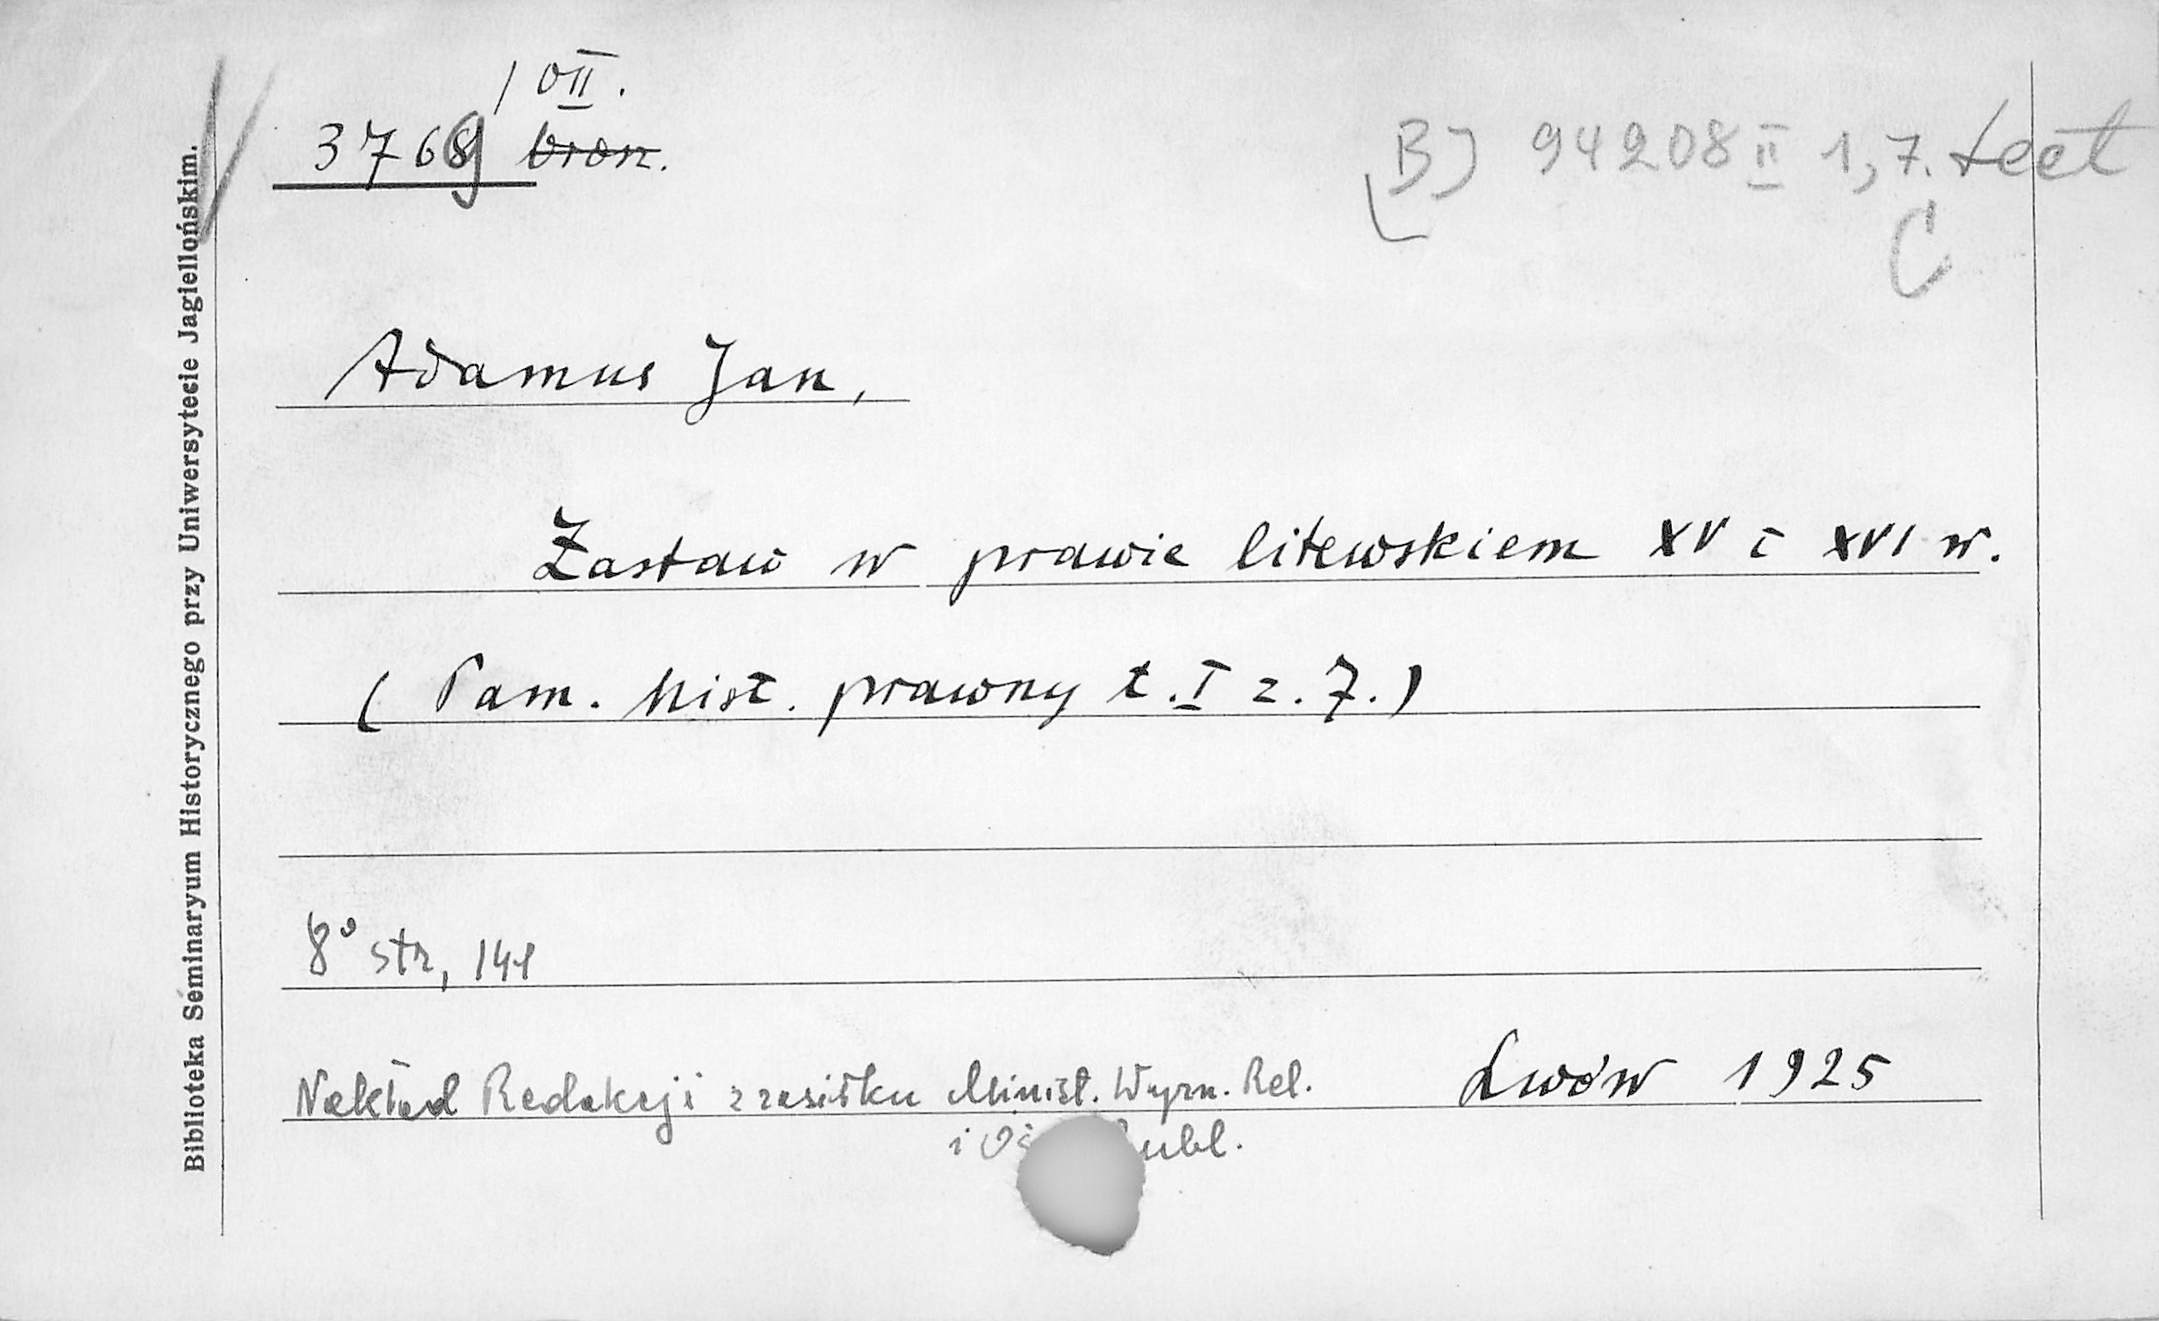 / OII.
3769 bron.
BJ 94208 II 1,7.
C
Adamus Jan,
Zastaw w prawie litewskiem XV i XVI w.
(Pam. hist. prawny t. I z. 7.)
8° str, 141
Nakład Redakcji z zasiłku Minist. Wyzn. Rel.
i Oś Publ.
Lwów 1925
Biblioteka Seminaryum Historycznego przy Uniwersytecie Jagiellońskim.